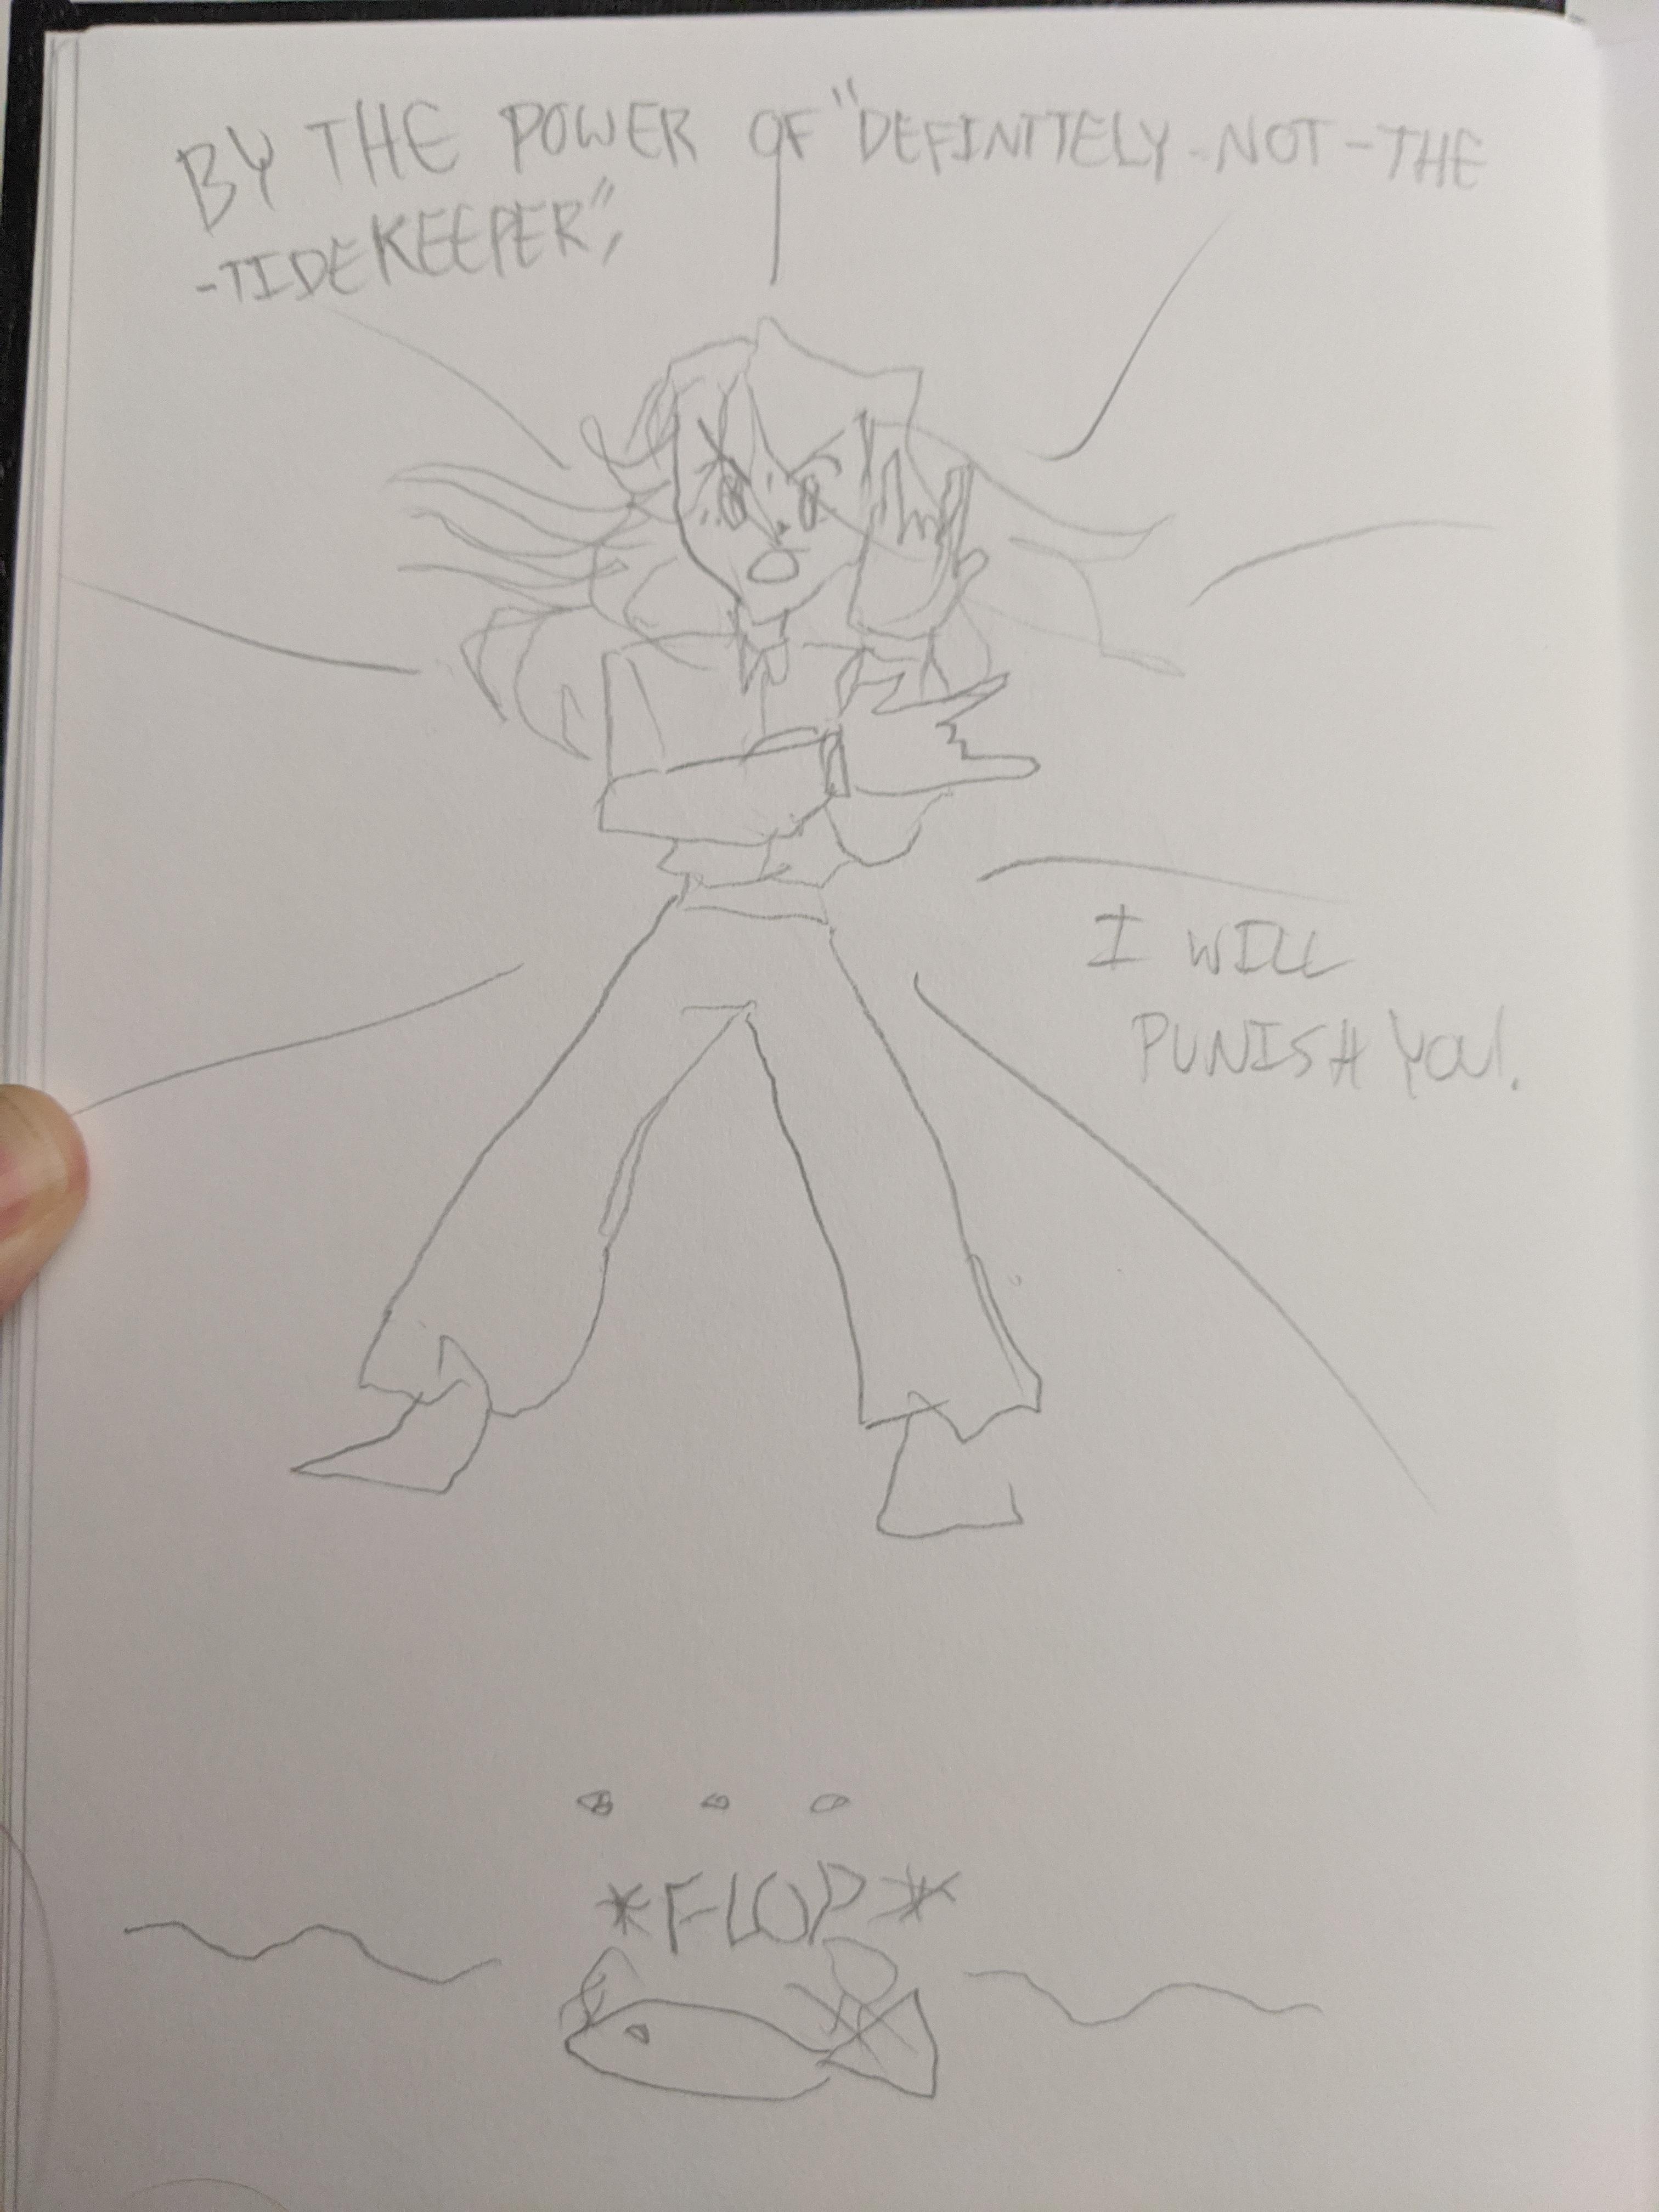 BY THE POWER OF "DEFINITELY-NOT-THE
-TIDEKEEPER",
I WILL
PUNISH YOU.
*FLOP*